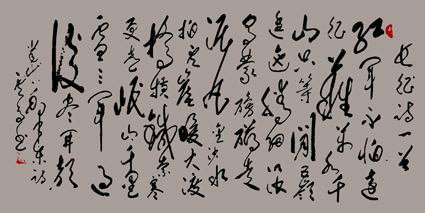 长征诗一首
红军不怕远
征难万水千
山只等闲五岭
逶迤腾细浪
乌蒙磅礴走
泥丸金沙水
拍云崖暖大渡
桥横铁索寒
更喜岷山千里
雪三军过
后尽开颜
毛泽东诗